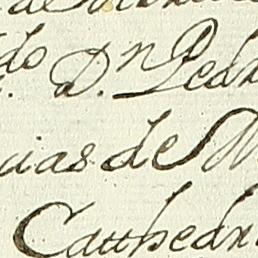 do D.n Pedr
uias de M
Cathedr